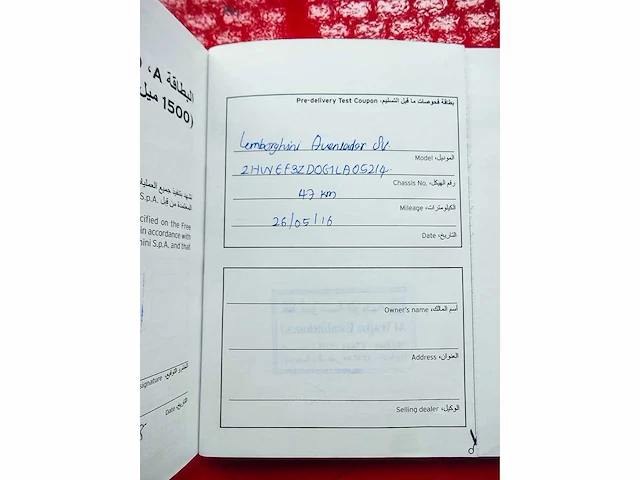 البطاقة A،
1500) ميل
نشهد بتنفيذ جميع العمليات
المعتمدة من قبل S.p.A.
cified on the Free
in accordance with
hini S.p.A. and that
الختم و التوقيع،
signature
التاريخ، Date
بطاقة فحوصات ما قبل التسليم، Pre-delivery Test Coupon
Lamborghini Aventador SV
الموديل، Model
رقم الهيكل، Chassis No.
47 km
الكيلومترات، Mileage
26/05/16
التاريخ، Date
أسم المالك، Owner's name
العنوان، Address
الوكيل، Selling dealer